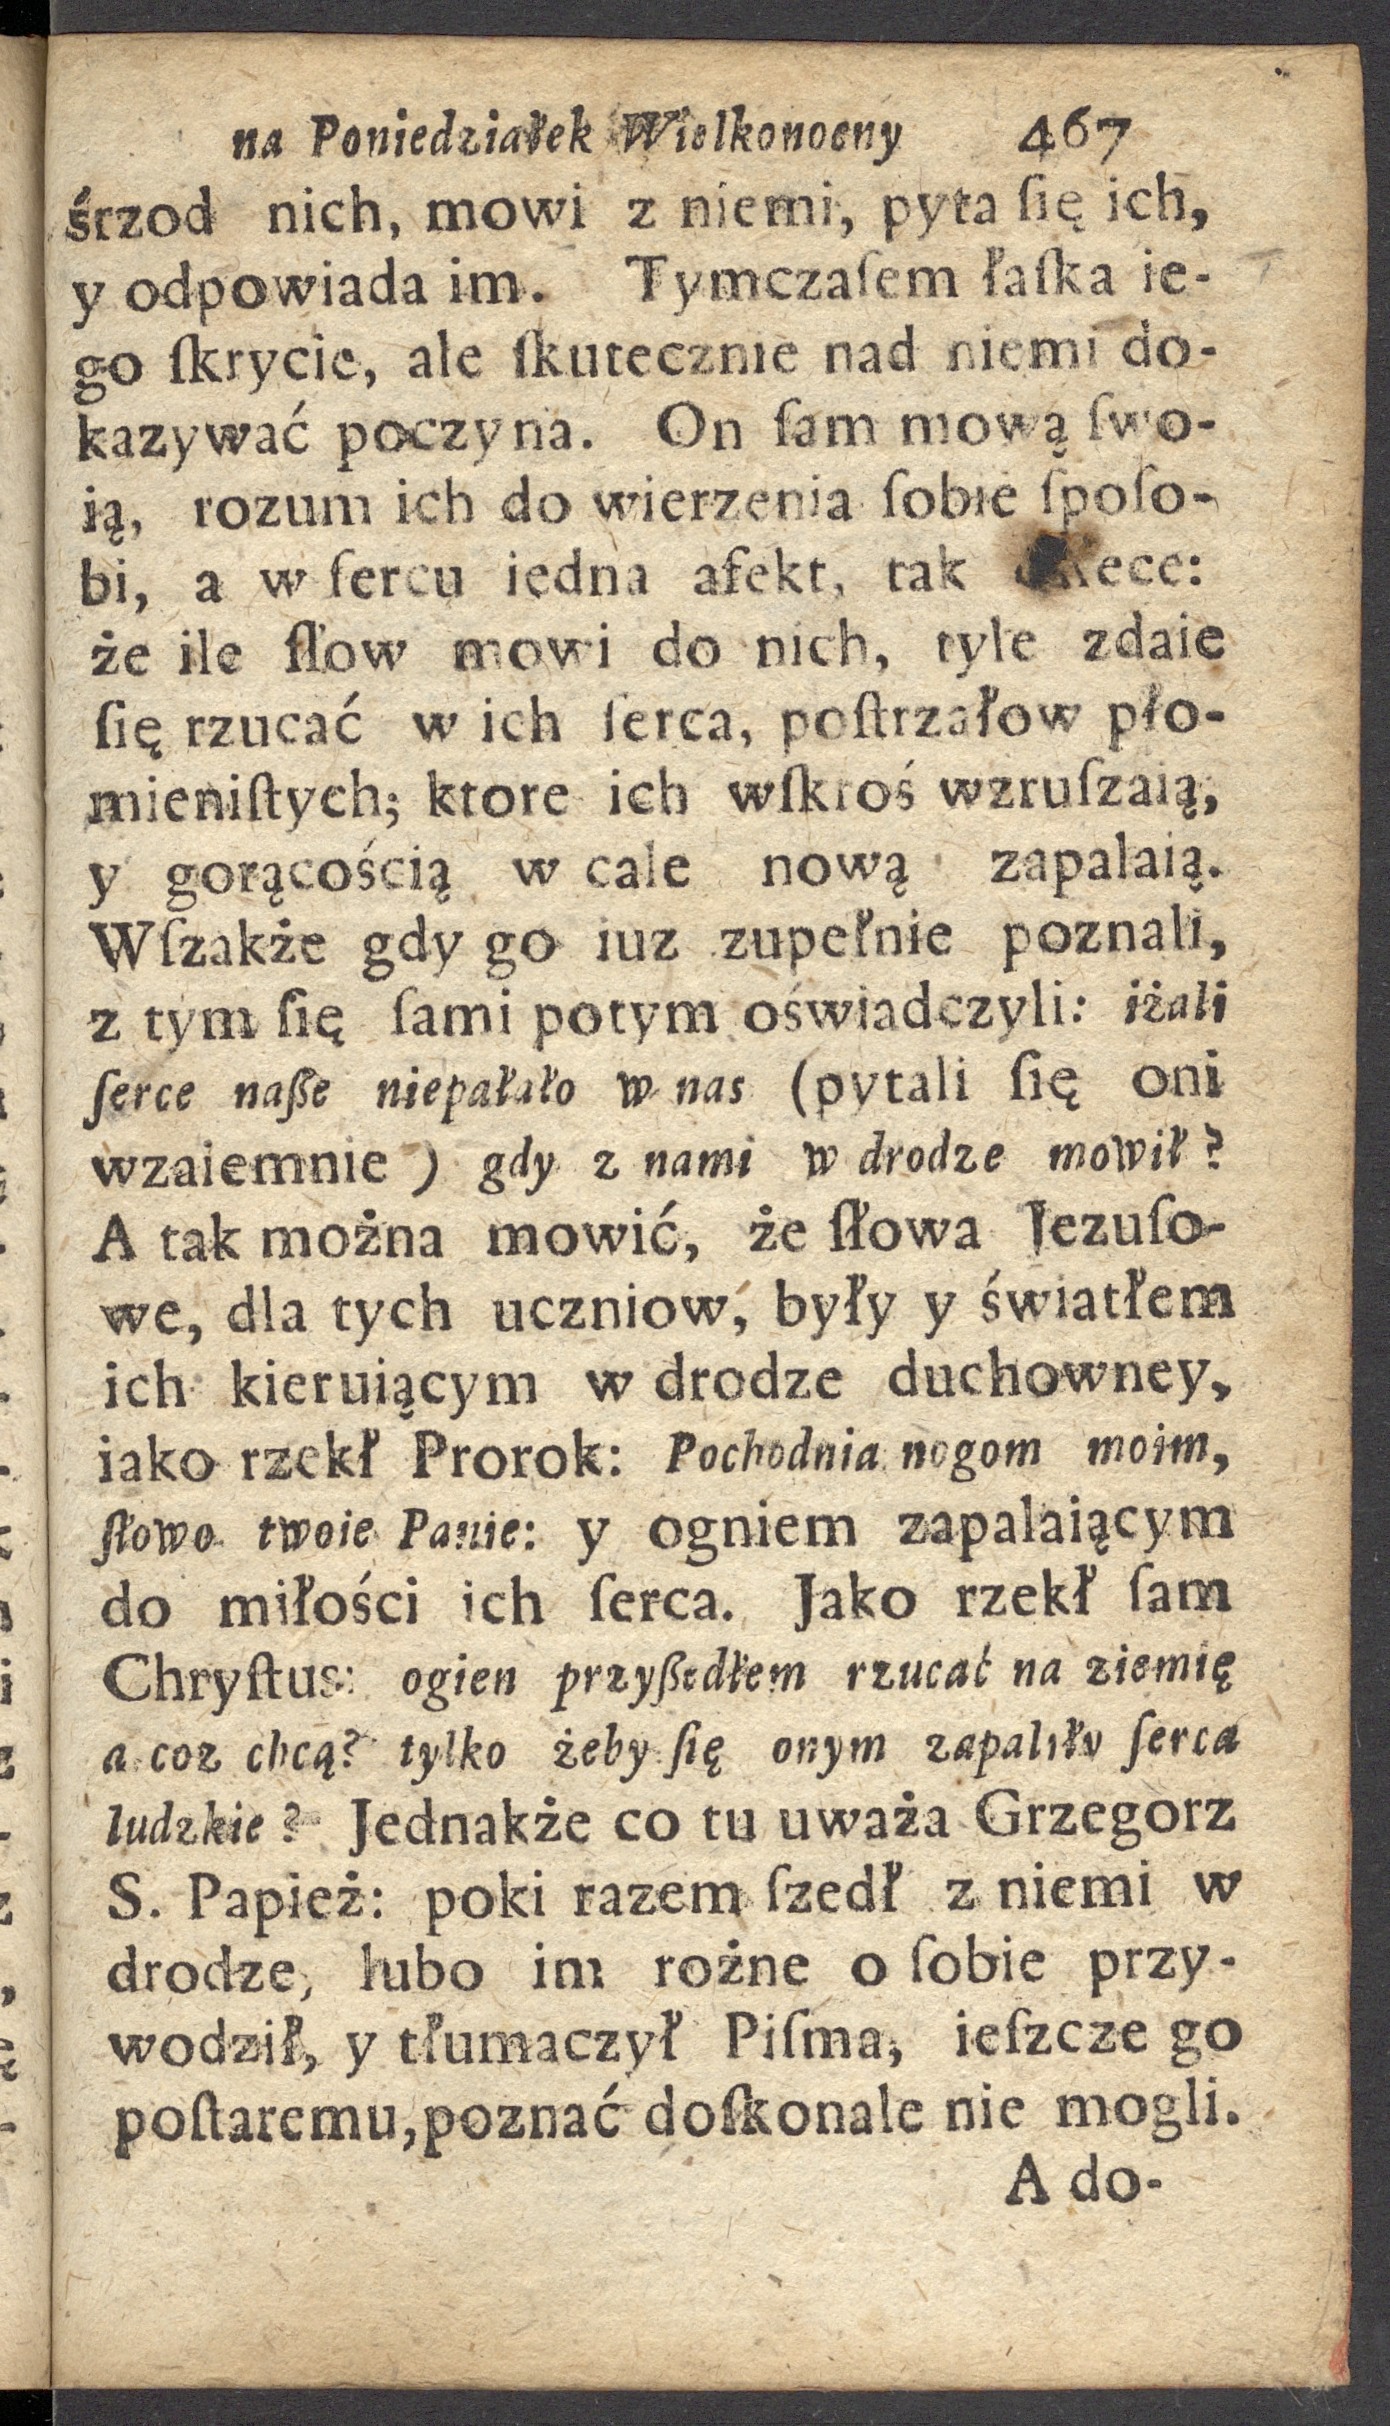 na Poniedziałek Wielkonocny 467
śrzod nich, mowi z niemi, pyta ſię ich,
y odpowiada im. Tymczaſem łaſka ie-
go ſkrycie, ale ſkutecznie nad niemi do-
kazywać poczyna. On ſam mową ſwo-
ią, rozum ich do wierzenia ſobie ſpoſo-
bi, a w ſercu iedna afekt, tak
że ile ſłow mowi do nich, tyle zdaie
ſię rzucać w ich ſerca, poſtrzałow pło-
mieniſtych; ktore ich wſkroś wzruſzaią,
y gorącością w cale nową zapalaią.
Wſzakże gdy go iuz zupełnie poznali,
z tym ſię ſami potym oświadczyli: iżali
ſerce naße niepałało w nas (pytali ſię oni
wzaiemnie) gdy z nami w drodze mowił?
A tak można mowić, że ſłowa Jezuſo-
we, dla tych uczniow, były y światłem
ich kieruiącym w drodze duchowney,
iako rzekł Prorok: Pochodnia nogom moim,
ſłowo twoie Panie: y ogniem zapalaiącym
do miłości ich ſerca. Jako rzekł ſam
Chryſtus: ogien przyßedłem rzucać na ziemię
a coz chcą? tylko żeby ſię onym zapaliło ſerca
ludzkie? Jednakże co tu uważa Grzegorz
S. Papież: poki razem ſzedł z niemi w
drodze, lubo im rożne o ſobie przy-
wodził, y tłumaczył Piſma, ieſzcze go
poſtaremu, poznać doſkonale nie mogli.
A do-